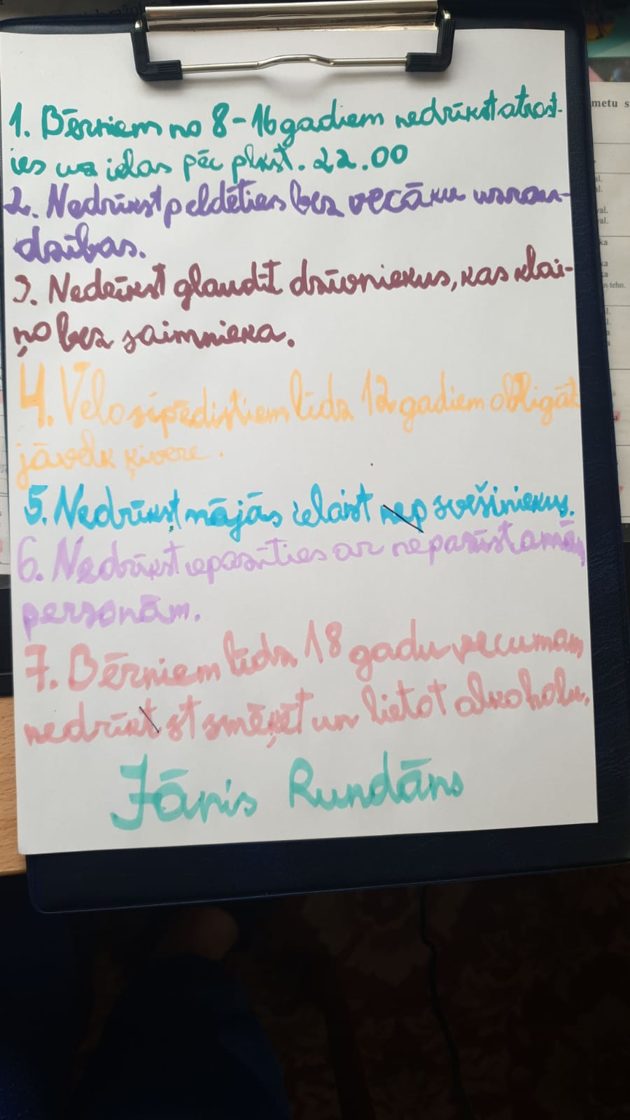 1. Bērniem no 8-16 gadiem nedrīkst atrast-
ies uz ielas pēc plkst. 22.00
2. Nedrīkst peldēties bez vecāku uzrau-
dzības.
3. Nedrīkst glaudīt dzīvniekus, kas klai-
ņo bez saimnieka.
4. Velosipēdistiem līdz 12 gadiem obligāt
jāvelk ķivere.
5. Nedrīkst mājās ielaist nep svešiniekus.
6. Nedrīkst iepazīties ar nepazīstamām
personām.
7. Bērniem līdz 18 gadu vecumam
nedrīkst st smēķēt un lietot alkoholu.
Jānis Rundāns
metu s